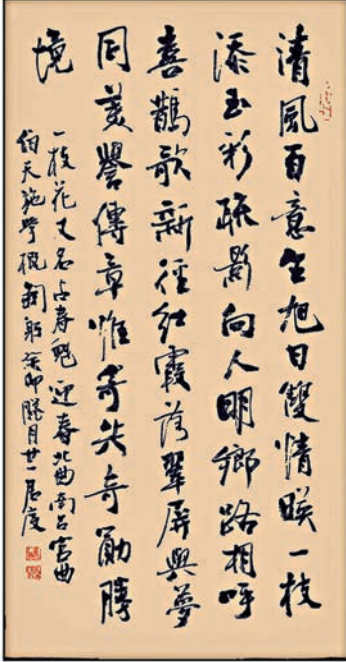 清風百意生旭日雙情映一枝
添玉彩疏影向人明鄉路相呼
喜鵲歌新徑紅霞落翠屏與夢
同美譽傳章惟寄共奇勛勝
境
一枝花又名占春魁迎春北曲南呂宮曲
伯天施學概鞠躬癸卯臘月廿一居度